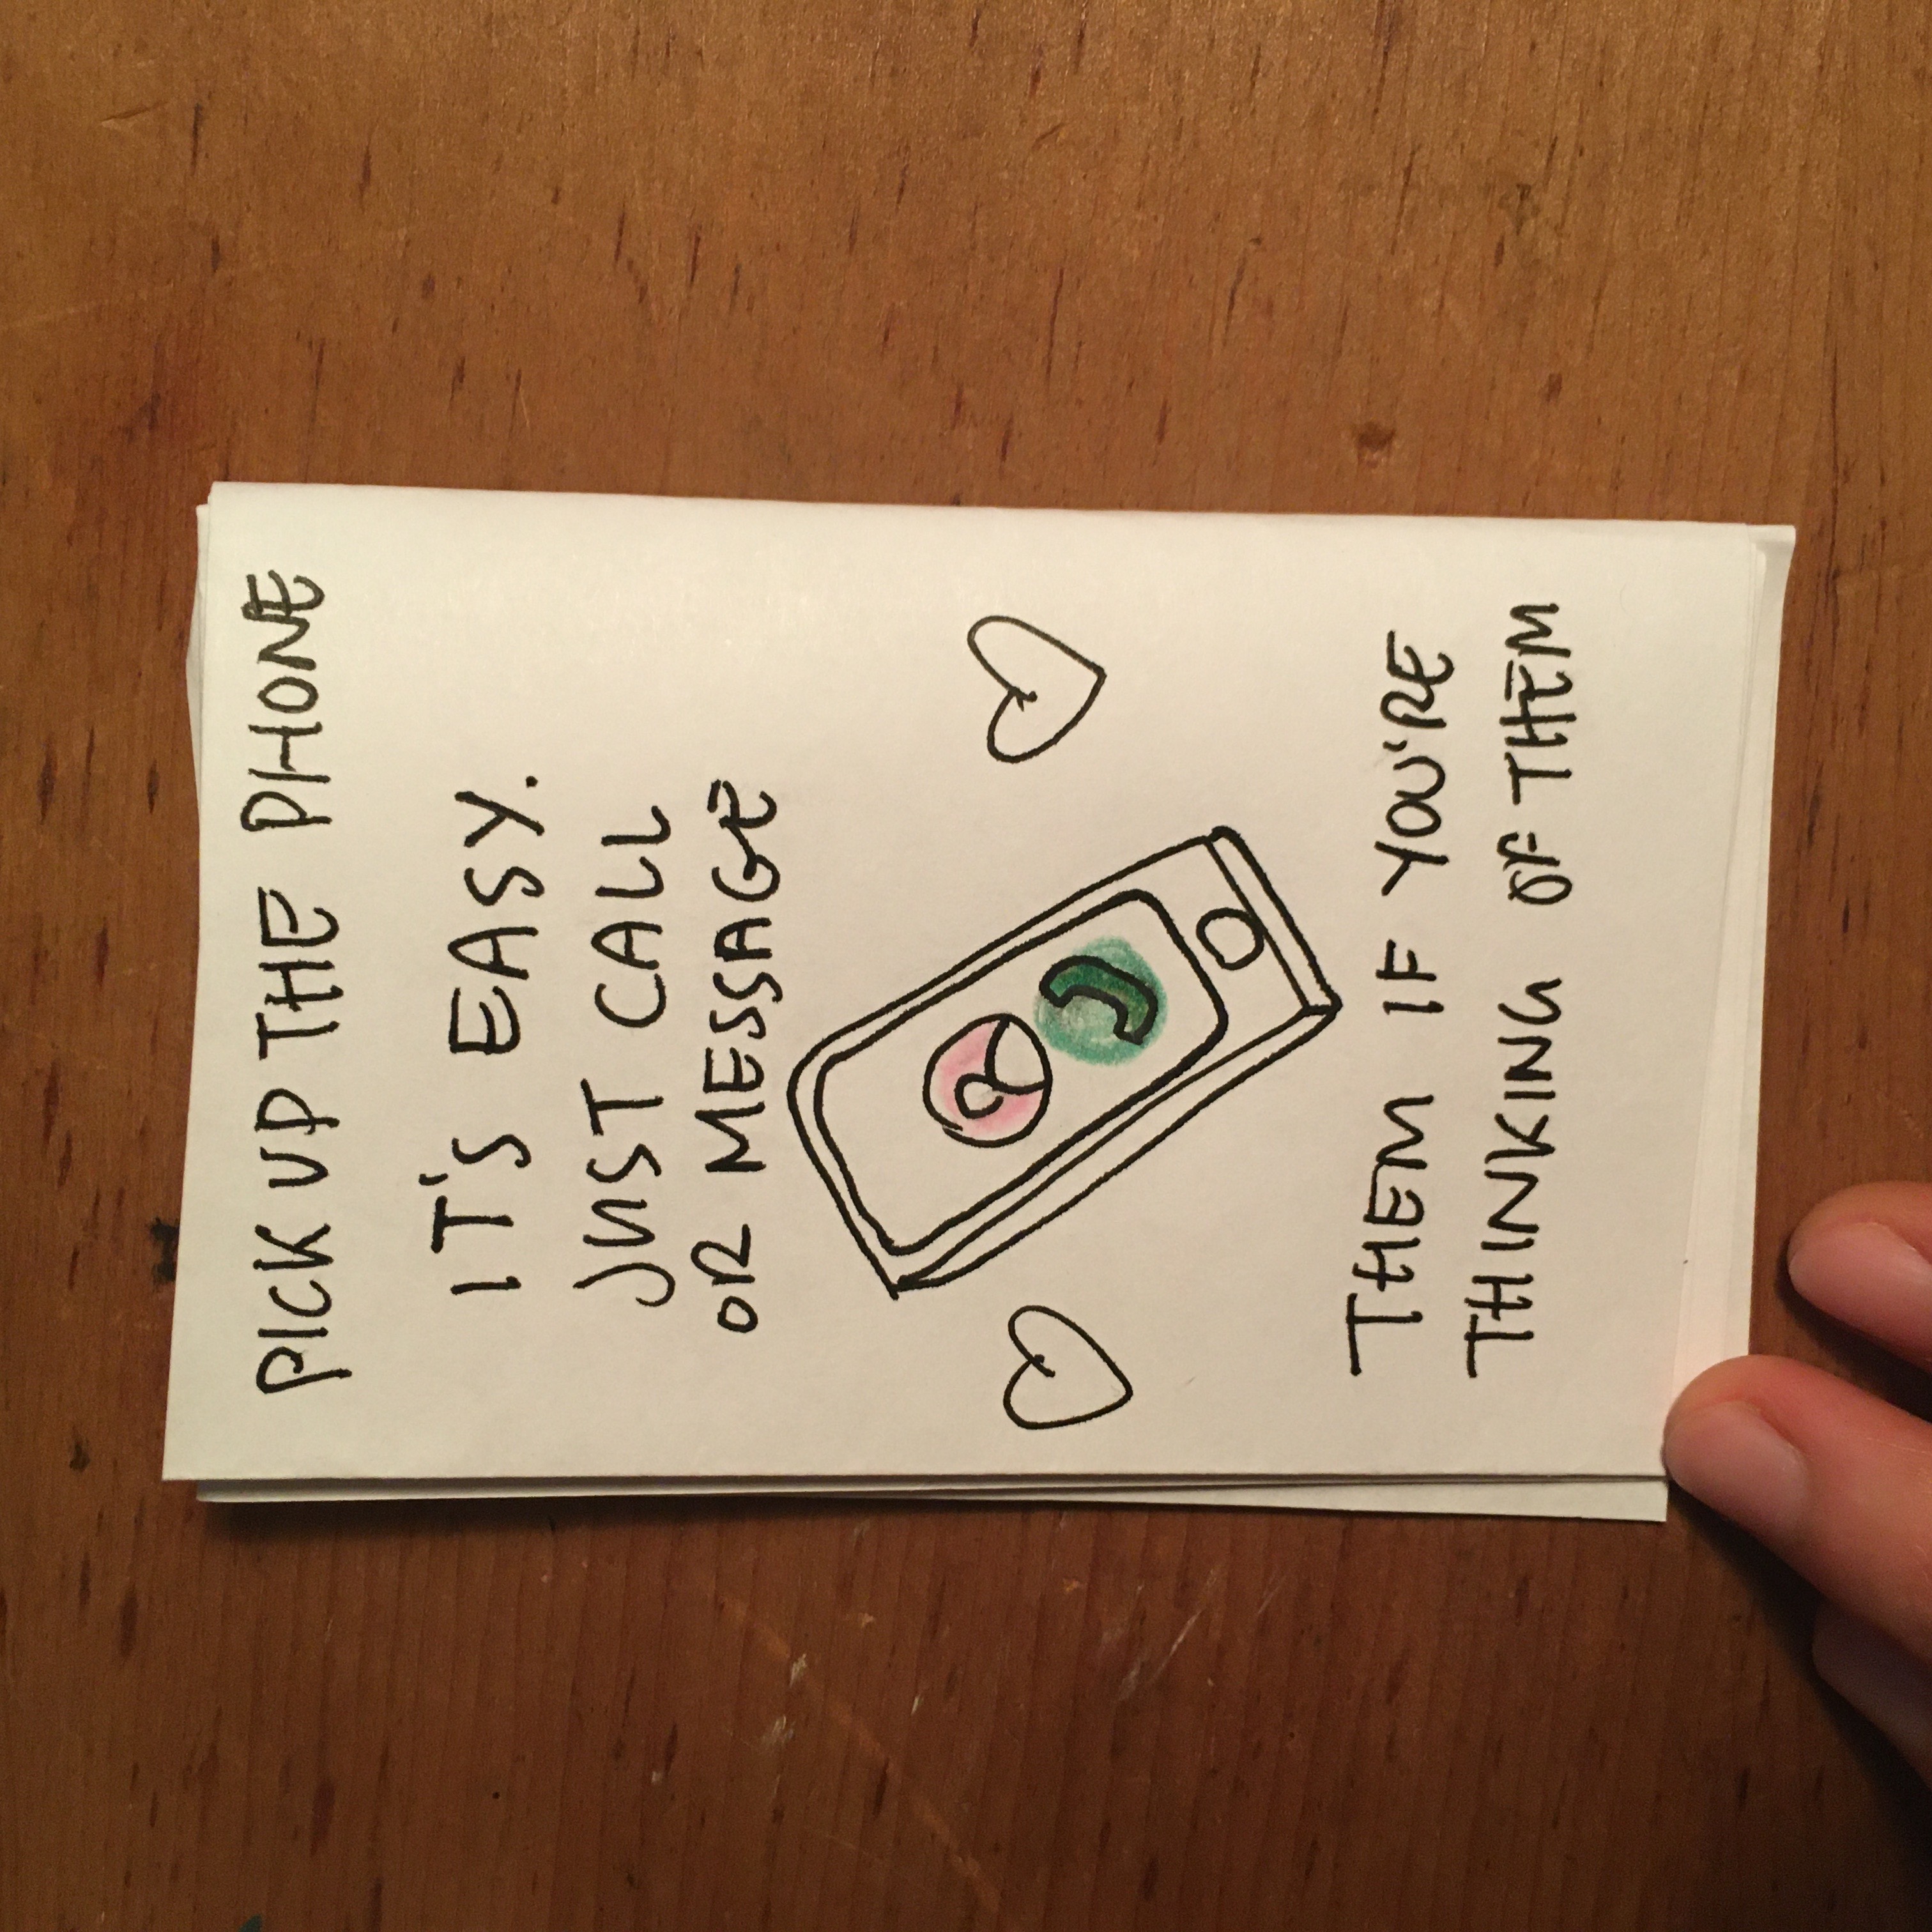 PICK UP THE PHONE
IT'S EASY.
JUST CALL
OR MESSAGE
THEM IF YOU'RE
THINKING OF THEM